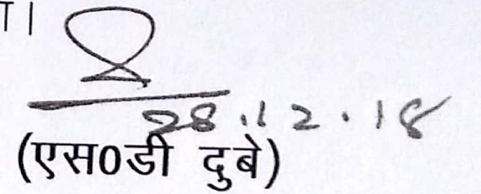 ा।
28.12.18
(एस0डी दुबे)